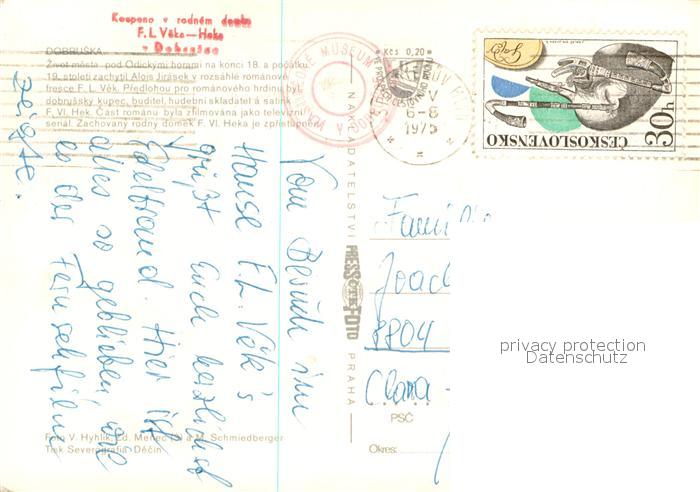 Koupeno v rodném domku
F. L. Věka—Heka
v Dobrušce
DOBRUŠKA
Život města pod Orlickými horami na konci 18. a počátku
19. století zachytil Alois Jirásek v rozsáhlé románové
fresce F. L. Věk. Předlohou pro románového hrdinu byl
dobrušský kupec, buditel, hudební skladatel a satirik
F. Vl. Hek. Část románu byla zfilmována jako televizní
seriál. Zachovaný rodný domek F. Vl. Heka je zpřístupněn.
Vom Besuch im
Hause F. L. Věk's
grüßt Euch herzlichst
Hier ist
alles so geblieben wie
es der Fernsehfilm
zeigte.
Foto V. Hyhlík, Ed. Menec (3) a M. Schmiedberger
Tisk Severografia Děčín
NAKLADATELSTVÍ
PRESSFOTO
PRAHA
Kčs 0,20
MUSEUM
6-8
1975
ČESKOSLOVENSKO
30h
Fami
Joac
8804
Clara-
PSČ
Okres:
privacy protection
Datenschutz